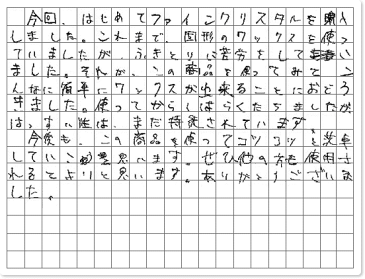 今回、はじめてファインクリスタルを購入
しました。これまで、固形のワックスを使っ
ていましたが、ふきとりに苦労をして
いました。それが、この商品を使ってみて、こ
んなに簡単にワックスが出来ることにおどろ
きました。使ってからしばらくたちましたが
はっすい性は、まだ持続されています。
今後も、この商品を使ってコツコツと洗車
していこうと思います。ぜひ他の方も使用さ
れるとよりと思います。ありがとうございま
した。